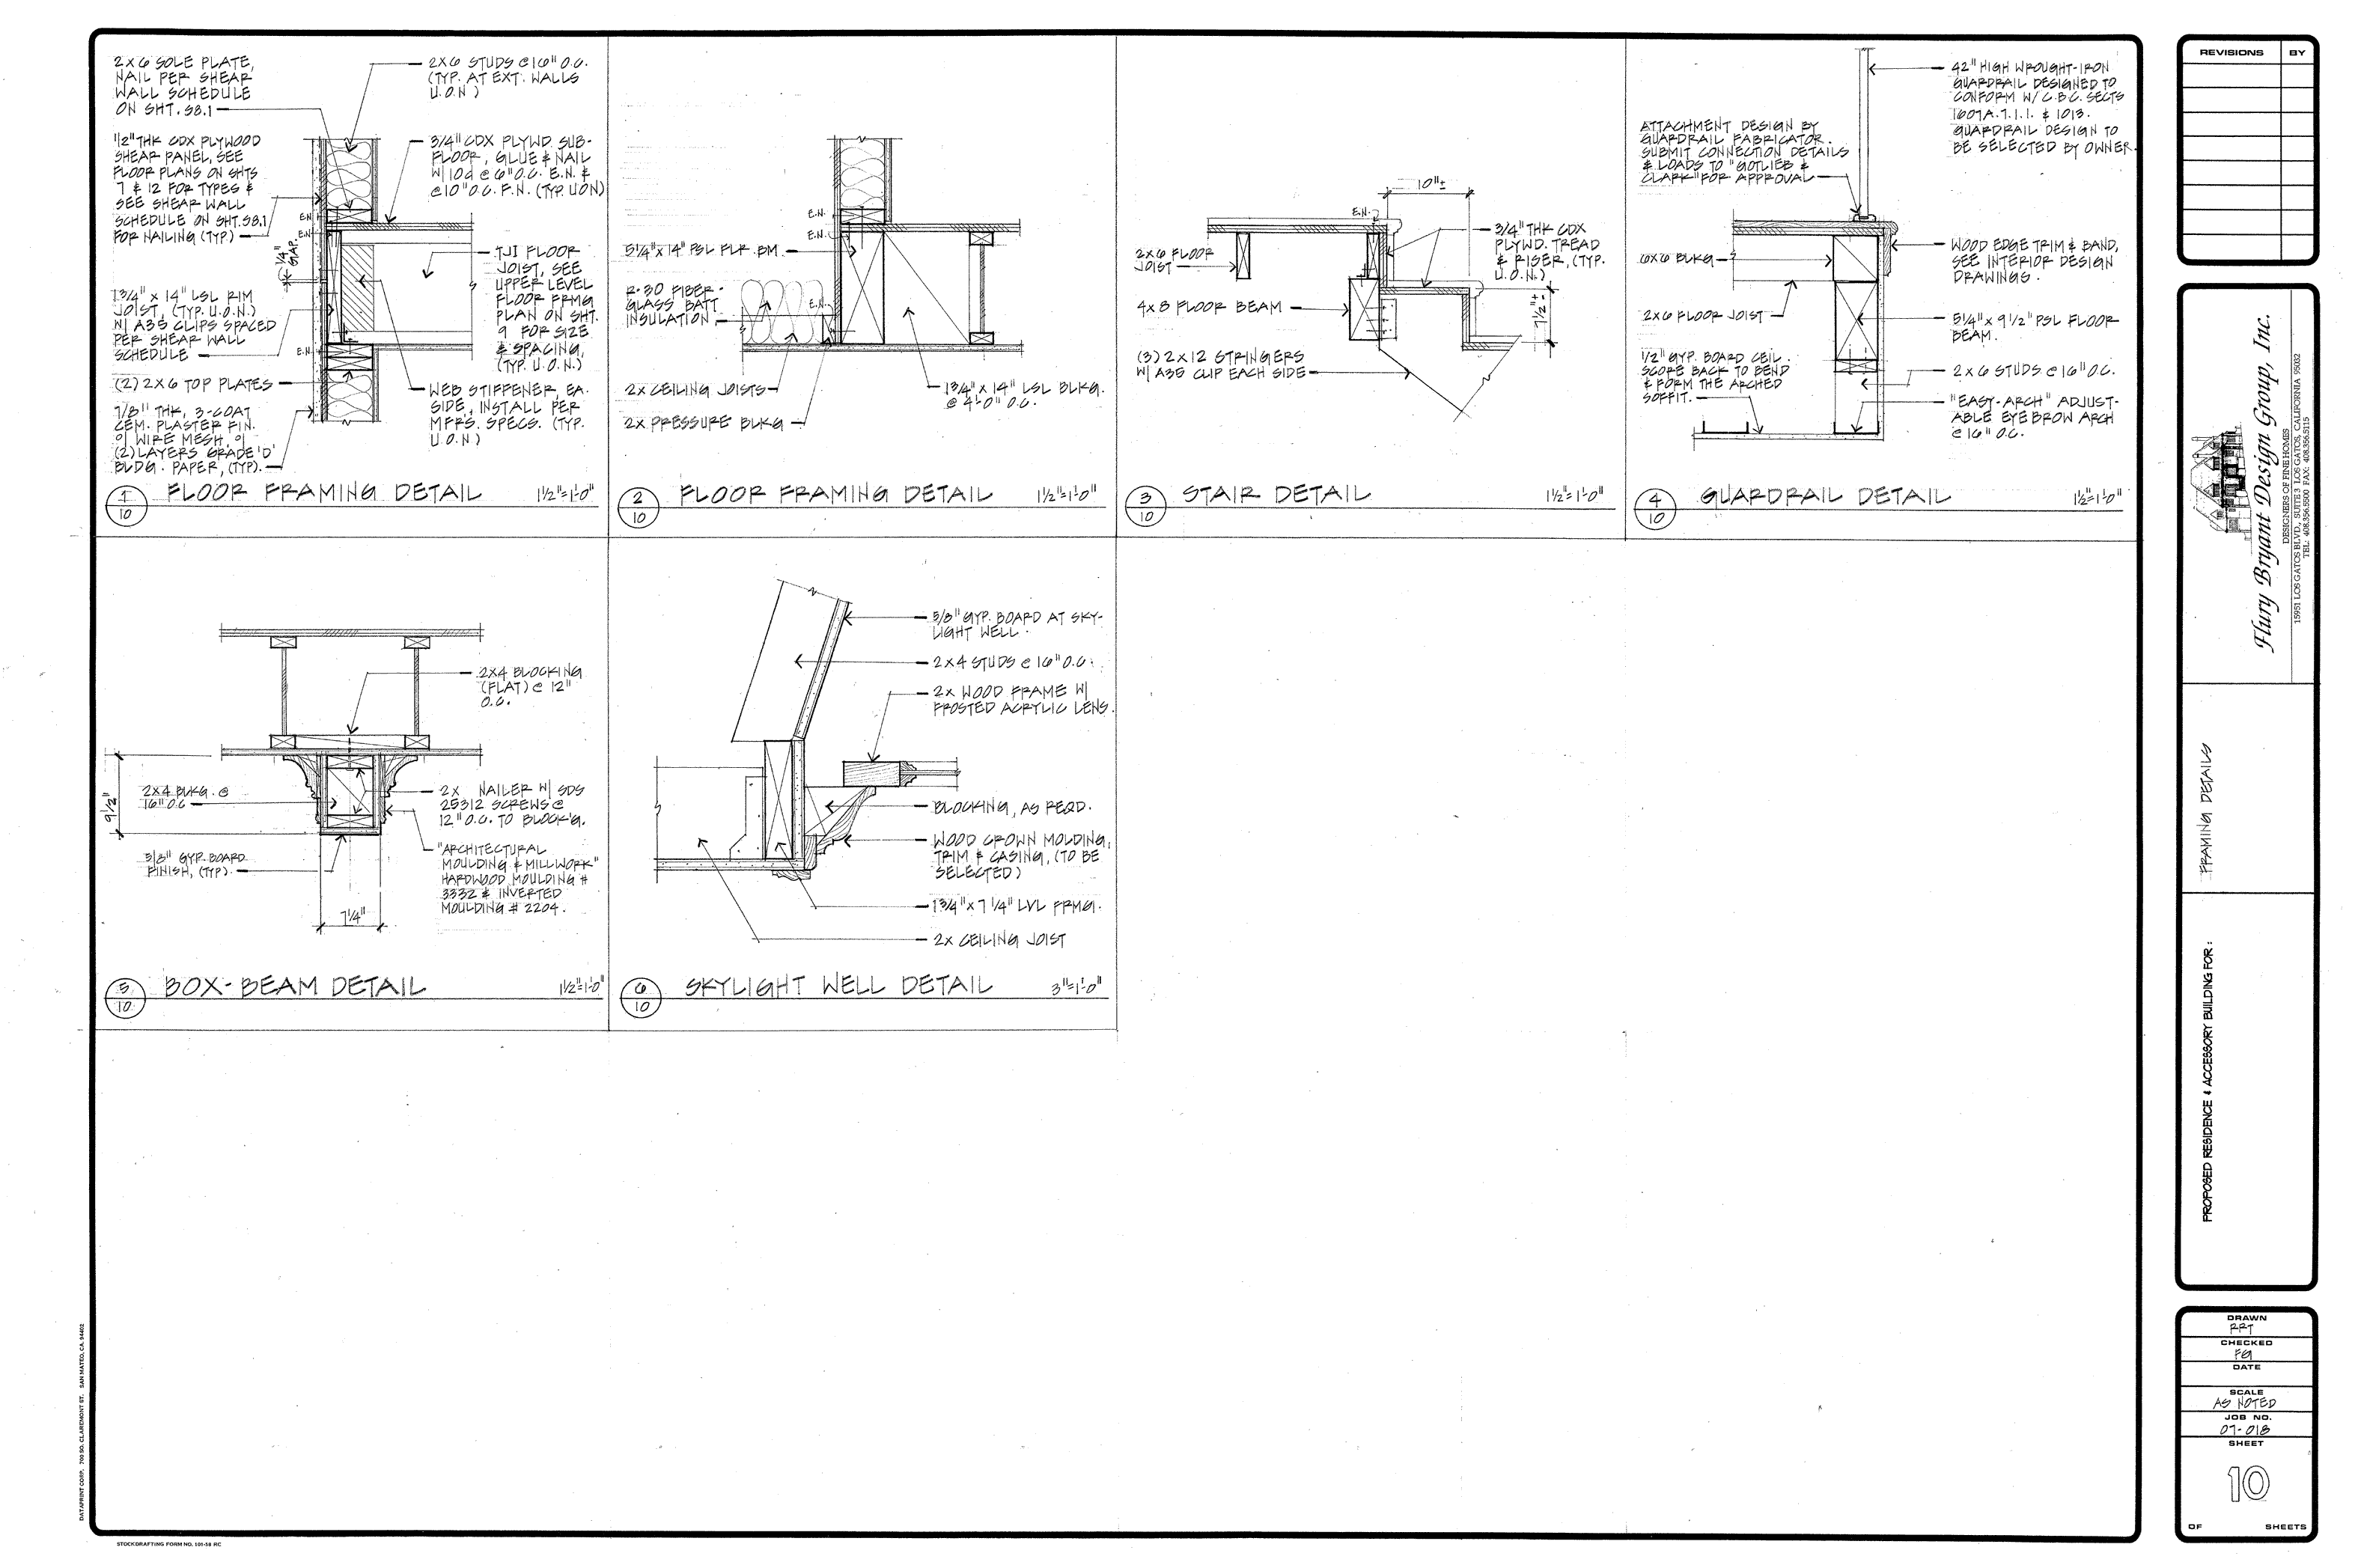 2X6 SOLE PLATE,
NAIL PER SHEAR
WALL SCHEDULE
ON SHT. S8.1
1/2" THK CDX PLYWOOD
SHEAR PANEL, SEE
FLOOR PLANS ON SHTS
7 & 12 FOR TYPES &
SEE SHEAR WALL
SCHEDULE ON SHT. S8.1
FOR NAILING (TYP.)
1 3/4" x 14" LSL RIM
JOIST, (TYP. U.O.N.)
W/ A35 CLIPS SPACED
PER SHEAR WALL
SCHEDULE
(2) 2X6 TOP PLATES
7/8" THK, 3-COAT
CEM. PLASTER FIN.
O/ WIRE MESH, O/
(2) LAYERS GRADE 'D'
BLDG. PAPER, (TYP).
2X6 STUDS @ 16" O.C.
(TYP. AT EXT. WALLS
U.O.N)
3/4" CDX PLYWD SUB-
FLOOR, GLUE & NAIL
W/ 10d @ 6" O.C. E.N. &
@ 10" O.C. F.N. (TYP. UON)
TJI FLOOR
JOIST, SEE
UPPER LEVEL
FLOOR FRMG
PLAN ON SHT.
9 FOR SIZE
& SPACING,
(TYP. U.O.N.)
WEB STIFFENER, EA.
SIDE, INSTALL PER
MFR'S. SPECS. (TYP.
U.O.N.)
E.N.
E.N.
E.N.
1/4"
GAP
1
10
FLOOR FRAMING DETAIL
1 1/2"=1'-0"
E.N.
E.N.
5 1/4" x 14" PSL FLR BM
R-30 FIBER-
GLASS BATT
INSULATION
E.N.
2X CEILING JOISTS
2X PRESSURE BLKG
1 3/4" x 14" LSL BLKG.
@ 4'-0" O.C.
2
10
FLOOR FRAMING DETAIL
1 1/2"=1'-0"
10"±
E.N.
2X6 FLOOR
JOIST
4X8 FLOOR BEAM
(3) 2X12 STRINGERS
W/ A35 CLIP EACH SIDE
3/4" THK CDX
PLYWD. TREAD
& RISER, (TYP.
U.O.N.)
7 1/2"±
3
10
STAIR DETAIL
1 1/2"=1'-0"
42" HIGH WROUGHT-IRON
GUARDRAIL DESIGNED TO
CONFORM W/ C.B.C. SECTS
1607A.7.1.1. & 1013.
GUARDRAIL DESIGN TO
BE SELECTED BY OWNER.
ATTACHMENT DESIGN BY
GUARDRAIL FABRICATOR.
SUBMIT CONNECTION DETAILS
& LOADS TO "GOTLIEB &
CLARK" FOR APPROVAL
6X6 BLKG
2X6 FLOOR JOIST
1/2" GYP. BOARD CEIL.
SCORE BACK TO BEND
& FORM THE ARCHED
SOFFIT.
WOOD EDGE TRIM & BAND,
SEE INTERIOR DESIGN
DRAWINGS.
5 1/4" x 9 1/2" PSL FLOOR
BEAM.
2X6 STUDS @ 16" O.C.
"EASY-ARCH" ADJUST-
ABLE EYEBROW ARCH
@ 16" O.C.
4
10
GUARDRAIL DETAIL
1 1/2"=1'-0"
2X4 BLOCKING
(FLAT) @ 12"
O.C.
9 1/2"
2X4 BLKG. @
16" O.C
5/8" GYP. BOARD
FINISH, (TYP).
2X NAILER W/ SDS
25312 SCREWS @
12" O.C. TO BLOCK'G.
"ARCHITECTURAL
MOULDING & MILLWORK"
HARDWOOD MOULDING #
3332 & INVERTED
MOULDING # 2204.
7 1/4"
5
10
BOX-BEAM DETAIL
1 1/2"=1'-0"
5/8" GYP. BOARD AT SKY-
LIGHT WELL.
2X4 STUDS @ 16" O.C.
2X WOOD FRAME W/
FROSTED ACRYLIC LENS.
BLOCKING, AS REQD.
WOOD CROWN MOLDING,
TRIM & CASING, (TO BE
SELECTED)
1 3/4" x 7 1/4" LVL FRMG.
2X CEILING JOIST
6
10
SKYLIGHT WELL DETAIL
3"=1'-0"
REVISIONS BY
Flury Bryant Design Group, Inc.
DESIGNERS OF FINE HOMES
15951 LOS GATOS BLVD., SUITE 3 LOS GATOS, CALIFORNIA 95032
TEL: 408.356.5500 FAX: 408.356.5115
FRAMING DETAILS
PROPOSED RESIDENCE & ACCESSORY BUILDING FOR:
DRAWN
RRT
CHECKED
FG
DATE
SCALE
AS NOTED
JOB NO.
07-018
SHEET
10
OF SHEETS
DATAPRINT CORP. 700 SO. CLAREMONT ST. SAN MATEO, CA. 94402
STOCKDRAFTING FORM NO. 101-58 RC